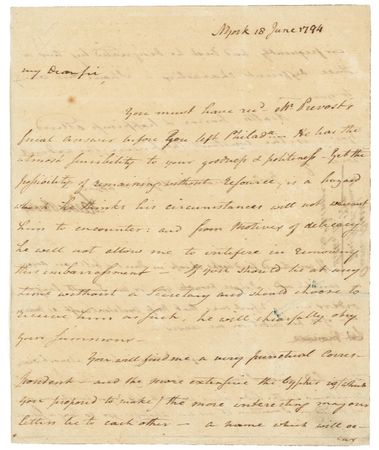 NYork 18 June 1794
My Dear Sir,
You must have recd. Mr Prevosts
final answer before you left Philada — He has the
utmost sensibility to your goodness & politeness — Yet the
possibility of remaining without resource, is a hazard
which he thinks his circumstances will not warrant
him to encounter: and from Motives of delicacy
he will not allow me to interfere in removing
this embarrassment — If you should be at any
time without a Secretary and should choose to
receive him as such, he will chearfully obey
your Summons —
You will find me a very punctual corres-
pondent — and the more extensive the Cypher (which
you propose to make) the more interesting may our
letters be to each other — a name which will oc-
cur